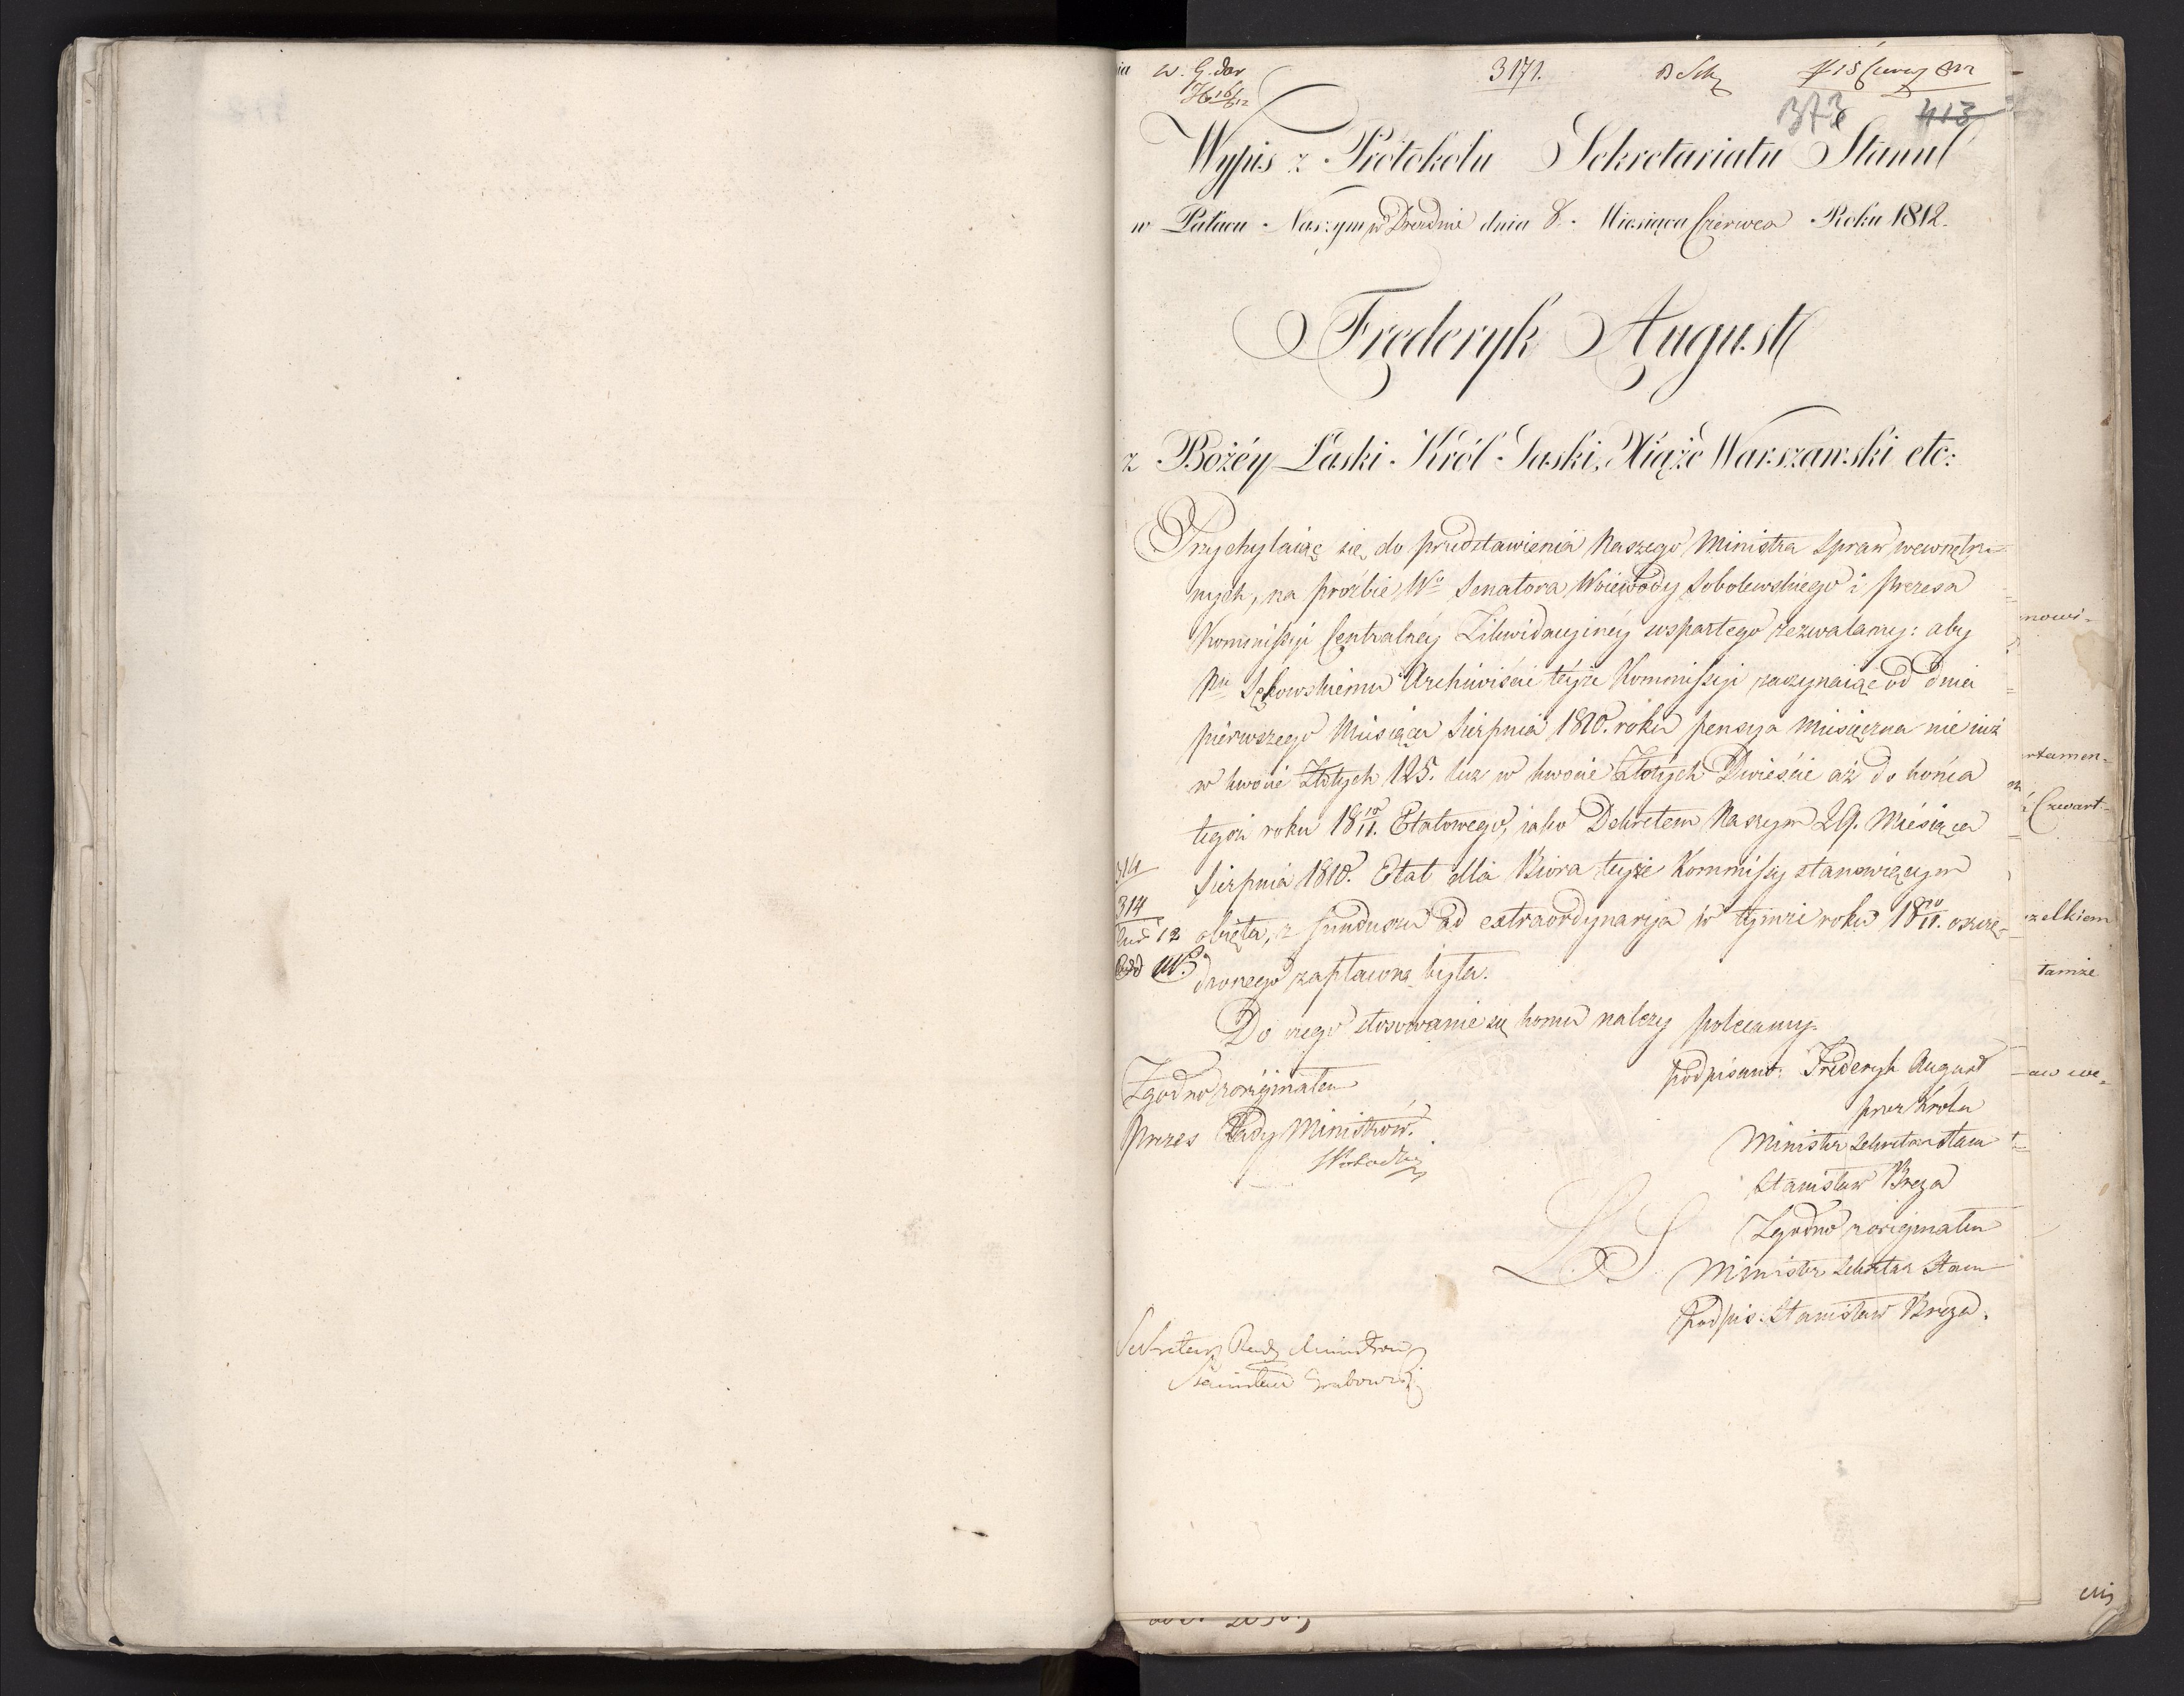 w. G. dar
3171.
373 413
Wypis z Protokołu Sekretariatu Stanu
w Pałacu Naszym w Dreźnie dnia 8. Miesiąca Czerwca Roku 1812.
Frederyk August
z Bożéy Łaski Król Saski, Xiążę Warszawski etc:
Przychylaiąc się do przedstawienia Naszego Ministra Spraw wewnętrz-
nych, na prośbie Wo Senatora Woiewody Sobolewskiego i prezesa
Kommissyi Centralnéy Likwidacyinéy wspartego zezwalamy: aby
Pnu Sękowskiemu Archiwiście téyże Kommissyi zaczynaiąc od dnia
pierwszego Miesiąca Sierpnia 1810. roku pensya miesięczna nie iuż
w kwocie Złotych 125. lecz w kwocie Złotych Dwieście aż do końca
tegoż roku 18 10/11. Etatowego, iako Dekretem Naszym 29. Miesiąca
Sierpnia 1810. Etat dla Biora teyże Kommissyi stanowiącym
314
314
obięta, z funduszu ad extraordynaryja w tymże roku 18 10/11. oszczę-
dzonego zapłacona była.
Do czego stosowanie się komu należy polecamy.
Zgodno z originałem
Prezes Rady Ministrów.
podpisano: Frederyk August
przez Króla
Minister Sekretarz Stanu
Stanisław Breza
L. S.
Zgodno z originałem
Minister Sekretarz Stanu
podpis: Stanisław Breza.
Sekretarz Rady Ministrów
Stanisław Grabowski
nowi-
rtamen-
i Czwart-
zelkiem
tamże
aw we-